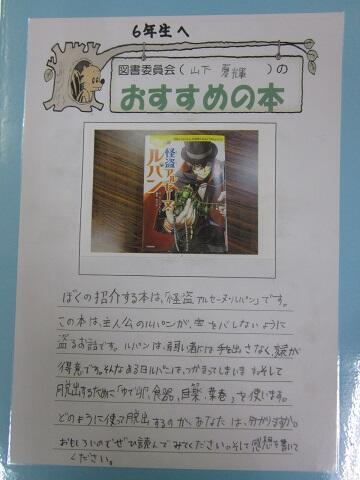 6年生へ
図書委員会(山下 )の
おすすめの本
怪盗
アルセーヌ
ルパン
ぼくの紹介する本は、「怪盗アルセーヌ・ルパン」です。
この本は、主人公のルパンが、宝をバレないように
盗るお話です。ルパンは、弱い者には手を出さなく、変装が
得意です。そんなある日ルパンは、つかまってしまいます。そして
脱出するために「ゆで卵、食器、目薬、葉巻」を使います。
どのように使って脱出するのか、あなたは、分かりますか。
おもしろいのでぜひ読んでみてください。そして感想を書いて
ください。